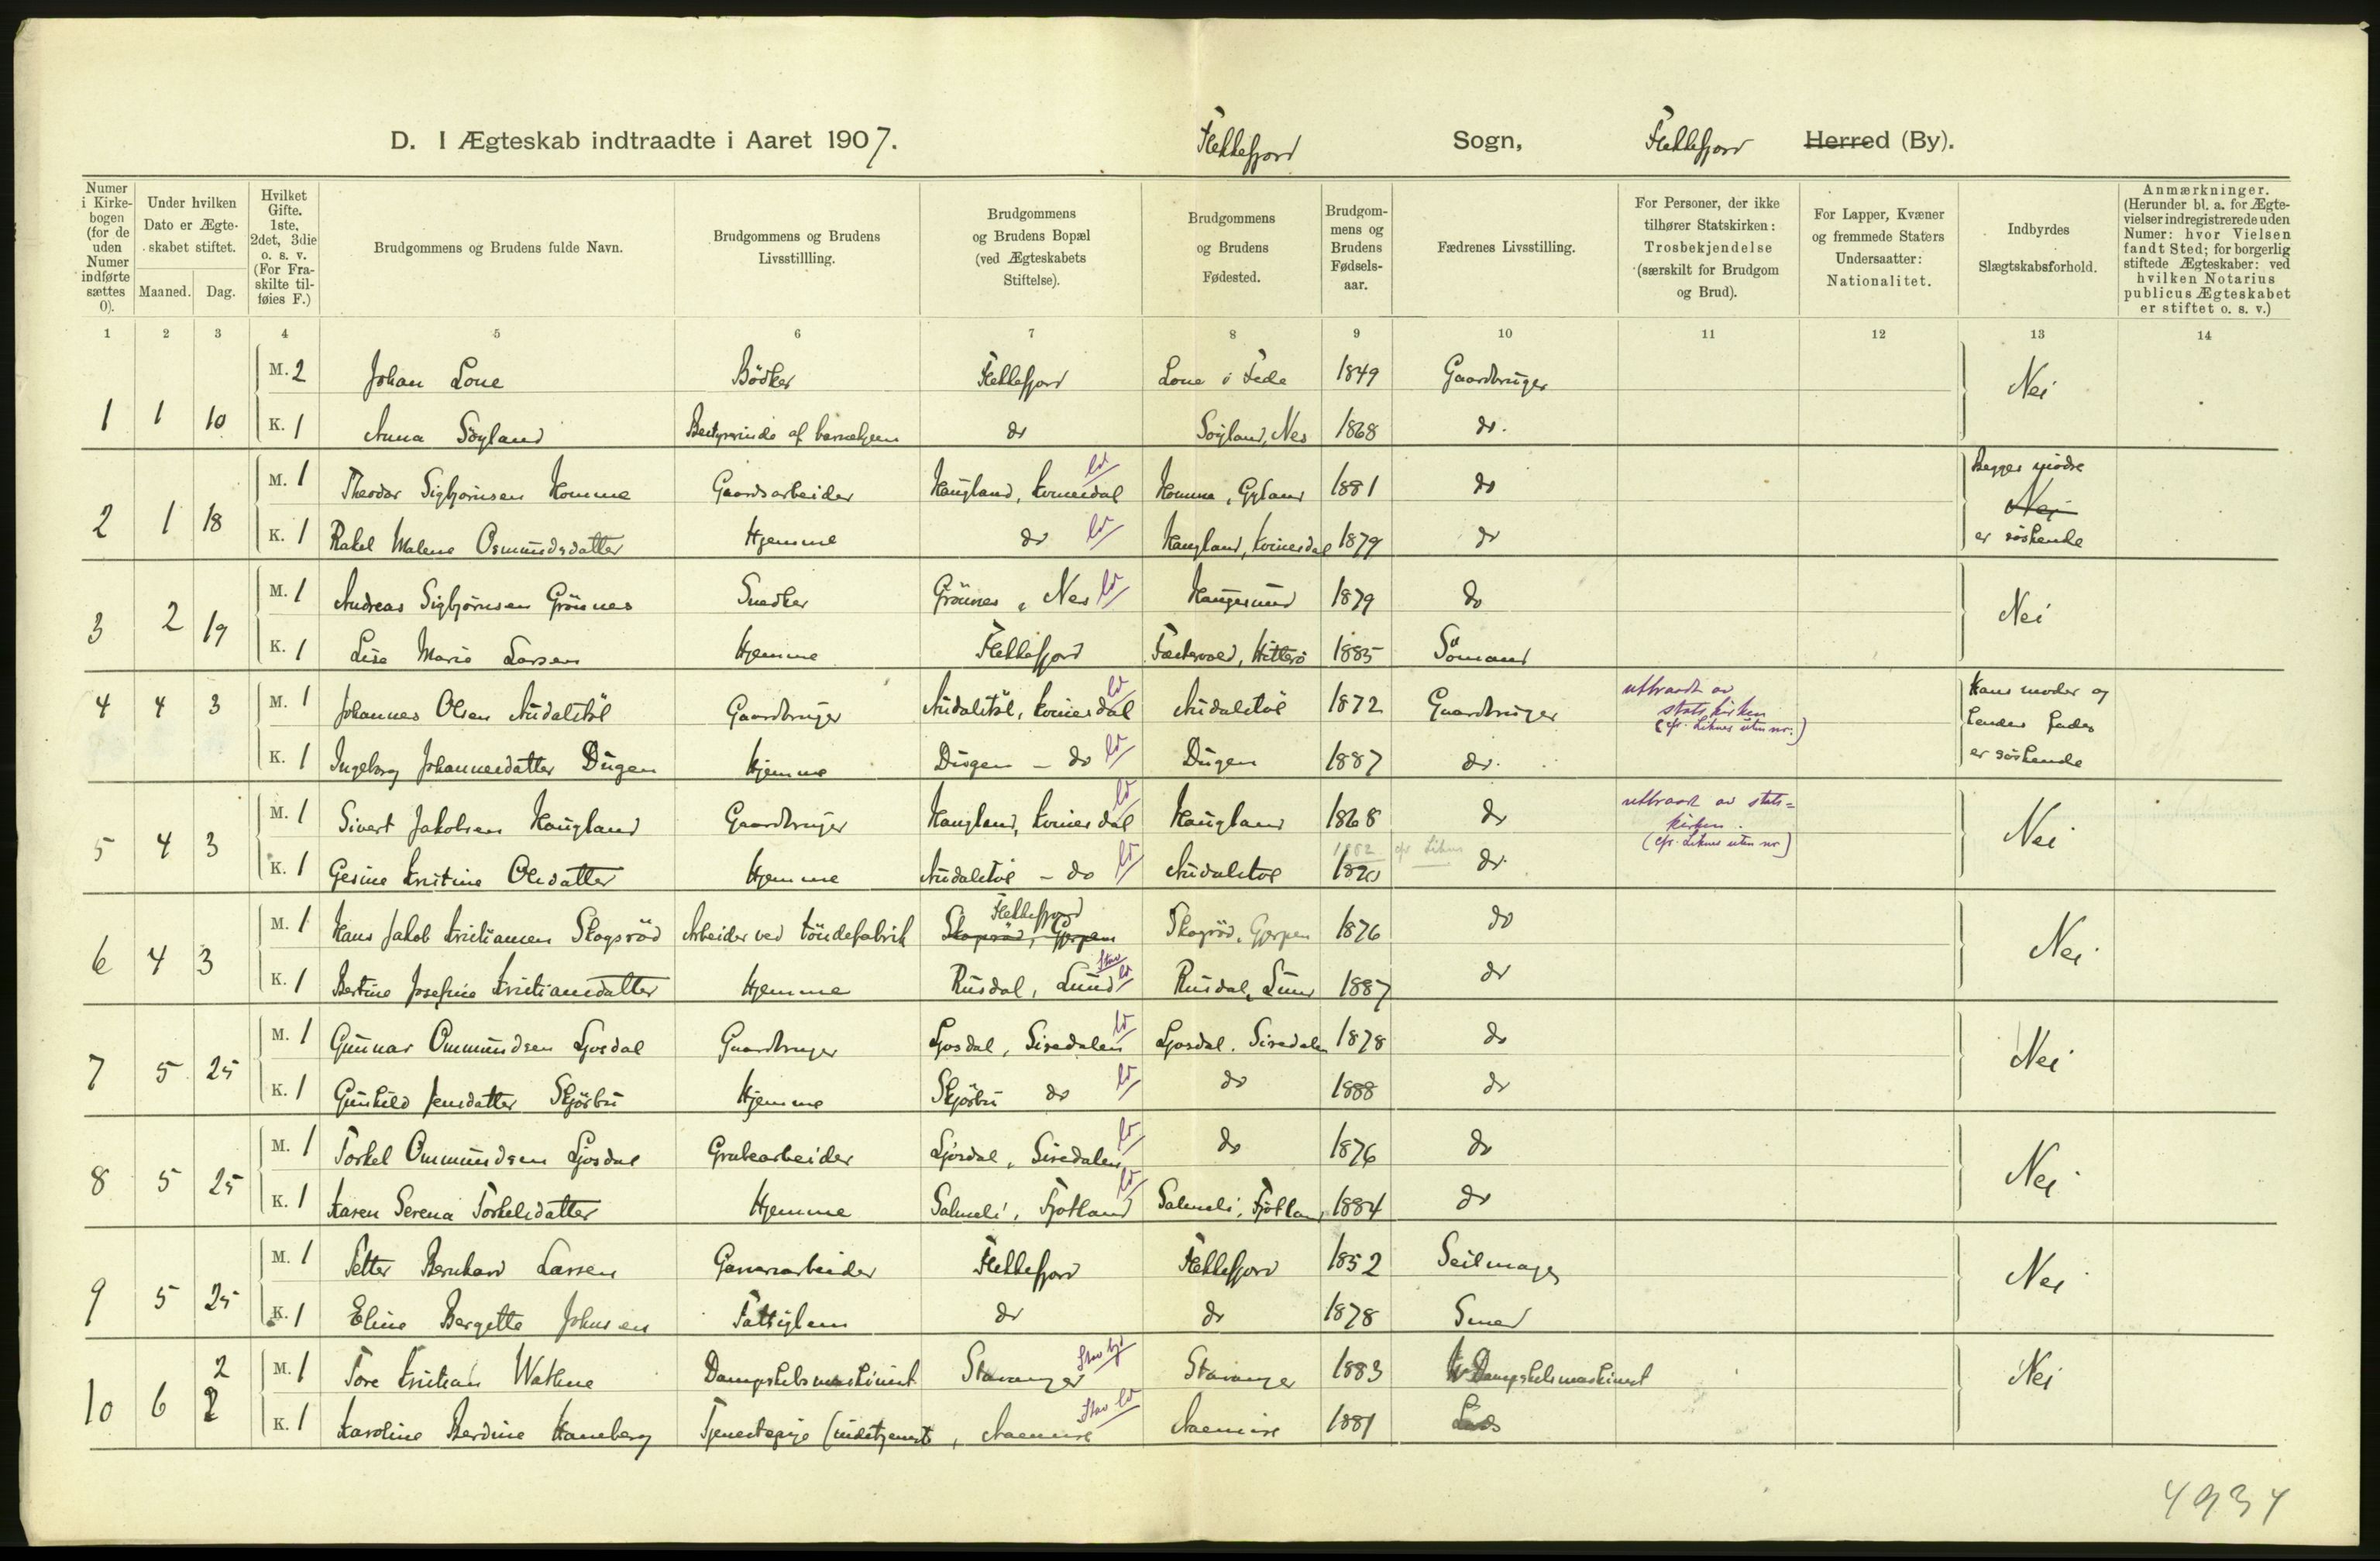 D. I Ægteskab indtraadte i Aaret 1907. Flekkefjord Sogn, Flekkefjord Herred (By).
Numer i Kirkebogen (for de uden Numer indførte sættes 0).
Under hvilken Dato er Ægteskabet stiftet.
Maaned. Dag.
Hvilket Gifte. 1ste, 2det, 3die o. s. v. (For Fraskilte tilføies F.)
Brudgommens og Brudens fulde Navn.
Brudgommens og Brudens Livsstillling.
Brudgommens og Brudens Bopæl (ved Ægteskabets Stiftelse).
Brudgommens og Brudens Fødested.
Brudgommens og Brudens Fødselsaar.
Fædrenes Livsstilling.
For Personer, der ikke tilhører Statskirken: Trosbekjendelse (særskilt for Brudgom og Brud).
For Lapper, Kvæner og fremmede Staters Undersaatter: Nationalitet.
Indbyrdes Slægtskabsforhold.
Anmærkninger. (Herunder bl. a. for Ægtevielser indregistrerede uden Numer: hvor Vielsen fandt Sted; for borgerlig stiftede Ægteskaber: ved hvilken Notarius publicus Ægteskabet er stiftet o. s. v.)
1 2 3 4 5 6 7 8 9 10 11 12 13 14
M. 2 Johan Loue Bödker Flekkefjord Loue i Fede 1849 Gaardbruger Nei
1 1 10 K. 1 Anna Söyland Bestyrerinde af barnehjem do Söyland, Nes 1868 do.
M. 1 Theodor Sigbjörnsen Homme Gaardsarbeider Haugland, Kvinesdal ld Homme, Gyland 1881 do Begges mödre
2 1 18 Nei
K. 1 Rakel Malene Osmundsdatter Hjemme do ld Haugland, Kvinesdal 1879 do er söskende
M. 1 Andreas Sigbjörnsen Grönnes Snedker Grönnes, Nes ld Haugesund 1879 do Nei
3 2 19 K. 1 Lise Marie Larsen Hjemme Flekkefjord Hitterö 1885 Sömand
4 4 3 M. 1 Johannes Olsen Audalstöl Gaardbruger Audalstöl, Kvinesdal ld Audalstöl 1872 Gaardbruger utraadt av statskirken (cfr. Liknes uten nr.) Hans moder og hendes fader
K. 1 Ingeborg Johannesdatter Dugen Hjemme Dugen - do ld Dugen 1887 do. er söskende
M. 1 Sivert Jakobsen Haugland Gaardbruger Haugland, Kvinesdal ld Haugland 1868 do utraadt av statskirken. (cfr. Liknes uten nr.) Nei
5 4 3 1882 cfr Liknes
K. 1 Gesine Kristine Olsdatter Hjemme Audalstöl - do ld Audalstöl do.
M. 1 Hans Jakob Kristiansen Skogsröd Arbeider ved töndefabrik Flekkefjord Skogsröd, Gjerpen Skogsröd, Gjerpen 1876 do Nei
6 4 3 K. 1 Bertine Josefine Kristiansdatter Hjemme Rusdal, Lund Stav ld Rusdal, Lund 1887 do
M. 1 Gunnar Ommundsen Ljosdal Gaardbruger Ljosdal, Siredalen ld Ljosdal, Siredalen 1878 do Nei
7 5 25 K. 1 Gunhild Jensdatter Skjörbu Hjemme Skjörbu do ld do 1888 do
M. 1 Torkel Ommundsen Ljosdal Grubearbeider Ljosdal, Siredalen ld do 1876 do Nei
8 5 25 K. 1 Karen Serena Torkelsdatter Hjemme Salmeli, Fjotland ld Salmeli, Fjotland 1884 do
M. 1 Petter Bernhard Larsen Garverarbeider Flekkefjord Flekkefjord 1852 Seilmager Nei
9 5 25 K. 1 Eline Bergette Johnsen Fattiglem do do 1878 Smed
M. 1 Tore Kristian Wathne Dampskibsmaskinist Stavanger Stav by Stavanger 1883 Dampskibsmaskinist Nei
10 6 2 2 K. 1 Karoline Berdine Haneberg Tjenestepige (indetjeneste Stav ld 1881
4934